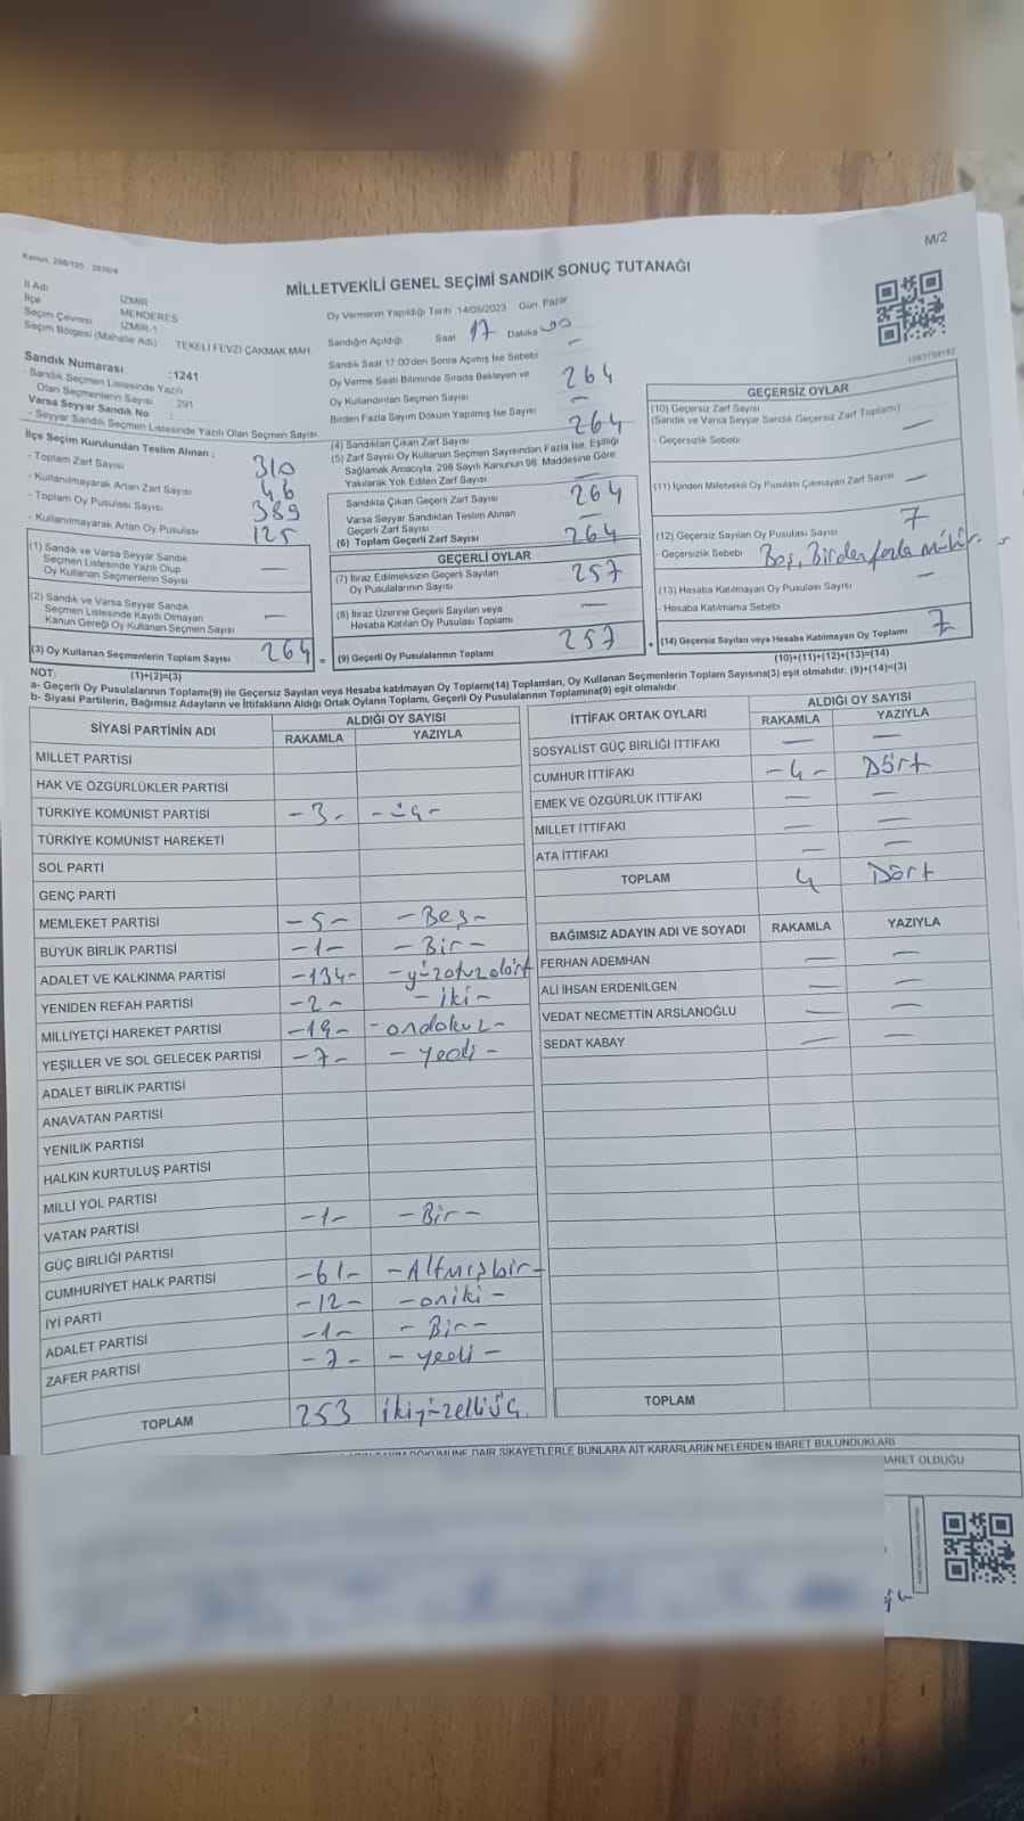 M/2
MİLLETVEKİLİ GENEL SEÇİMİ SANDIK SONUÇ TUTANAĞI
İl Adı İZMİR
İlçe MENDERES
Seçim Çevresi İZMİR-1
Seçim Bölgesi (Mahalle Adı) TEKELİ FEVZİ ÇAKMAK MAH.
Sandık Numarası :1241
Sandık Seçmen Listesinde Yazılı
Olan Seçmenlerin Sayısı : 291
Varsa Seyyar Sandık No :
- Seyyar Sandık Seçmen Listesinde Yazılı Olan Seçmen Sayısı
İlçe Seçim Kurulundan Teslim Alınan :
- Toplam Zarf Sayısı 310
- Kullanılmayarak Artan Zarf Sayısı 46
- Toplam Oy Pusulası Sayısı 389
- Kullanılmayarak Artan Oy Pusulası 125
(1) Sandık ve Varsa Seyyar Sandık
Seçmen Listesinde Yazılı Olup
Oy Kullanan Seçmenlerin Sayısı —
(2) Sandık ve Varsa Seyyar Sandık
Seçmen Listesinde Kayıtlı Olmayan
Kanun Gereği Oy Kullanan Seçmen Sayısı —
(3) Oy Kullanan Seçmenlerin Toplam Sayısı 264
(1)+(2)=(3)
Oy Vermenin Yapıldığı Tarih 14/05/2023 Gün Pazar
Sandığın Açıldığı Saat 17 Dakika 00
Sandık Saat 17:00'den Sonra Açılmış İse Sebebi —
Oy Verme Saati Bitiminde Sırada Bekleyen ve
Oy Kullandırılan Seçmen Sayısı 264
Birden Fazla Sayım Döküm Yapılmış İse Sayısı —
(4) Sandıktan Çıkan Zarf Sayısı 264
(5) Zarf Sayısı Oy Kullanan Seçmen Sayısından Fazla İse, Eşitliği
Sağlamak Amacıyla, 298 Sayılı Kanunun 98. Maddesine Göre
Yakılarak Yok Edilen Zarf Sayısı —
Sandıkta Çıkan Geçerli Zarf Sayısı 264
Varsa Seyyar Sandıktan Teslim Alınan
Geçerli Zarf Sayısı —
(6) Toplam Geçerli Zarf Sayısı 264
GEÇERLİ OYLAR
(7) İtiraz Edilmeksizin Geçerli Sayılan
Oy Pusulalarının Sayısı 257
(8) İtiraz Üzerine Geçerli Sayılan veya
Hesaba Katılan Oy Pusulası Toplamı —
(9) Geçerli Oy Pusulalarının Toplamı 257
GEÇERSİZ OYLAR
(10) Geçersiz Zarf Sayısı
(Sandık ve Varsa Seyyar Sandık Geçersiz Zarf Toplamı) —
- Geçersizlik Sebebi
(11) İçinden Milletvekili Oy Pusulası Çıkmayan Zarf Sayısı —
(12) Geçersiz Sayılan Oy Pusulası Sayısı 7
- Geçersizlik Sebebi Boş, Birden fazla mühür
(13) Hesaba Katılmayan Oy Pusulası Sayısı —
- Hesaba Katılmama Sebebi
(14) Geçersiz Sayılan veya Hesaba Katılmayan Oy Toplamı 7
(10)+(11)+(12)+(13)=(14)
NOT:
a- Geçerli Oy Pusulalarının Toplamı(9) ile Geçersiz Sayılan veya Hesaba katılmayan Oy Toplamı(14) Toplamları, Oy Kullanan Seçmenlerin Toplam Sayısına(3) eşit olmalıdır. (9)+(14)=(3)
b- Siyasi Partilerin, Bağımsız Adayların ve İttifakların Aldığı Ortak Oyların Toplamı, Geçerli Oy Pusulalarının Toplamına(9) eşit olmalıdır.
SİYASİ PARTİNİN ADI ALDIĞI OY SAYISI
RAKAMLA YAZIYLA
MİLLET PARTİSİ
HAK VE ÖZGÜRLÜKLER PARTİSİ
TÜRKİYE KOMÜNİST PARTİSİ -3- -üç-
TÜRKİYE KOMÜNİST HAREKETİ
SOL PARTİ
GENÇ PARTİ
MEMLEKET PARTİSİ -5- -Beş-
BÜYÜK BİRLİK PARTİSİ -1- -Bir-
ADALET VE KALKINMA PARTİSİ -134- -yüzotuzdört
YENİDEN REFAH PARTİSİ -2- -iki-
MİLLİYETÇİ HAREKET PARTİSİ -19- -ondokuz-
YEŞİLLER VE SOL GELECEK PARTİSİ -7- -yedi-
ADALET BİRLİK PARTİSİ
ANAVATAN PARTİSİ
YENİLİK PARTİSİ
HALKIN KURTULUŞ PARTİSİ
MİLLİ YOL PARTİSİ
VATAN PARTİSİ -1- -Bir-
GÜÇ BİRLİĞİ PARTİSİ
CUMHURİYET HALK PARTİSİ -61- -Altmışbir-
İYİ PARTİ -12- -oniki-
ADALET PARTİSİ -1- -Bir-
ZAFER PARTİSİ -7- -yedi-
TOPLAM 253 ikiyüzelliüç
İTTİFAK ORTAK OYLARI ALDIĞI OY SAYISI
RAKAMLA YAZIYLA
SOSYALİST GÜÇ BİRLİĞİ İTTİFAKI — —
CUMHUR İTTİFAKI -4- Dört
EMEK VE ÖZGÜRLÜK İTTİFAKI — —
MİLLET İTTİFAKI — —
ATA İTTİFAKI — —
TOPLAM 4 Dört
BAĞIMSIZ ADAYIN ADI VE SOYADI RAKAMLA YAZIYLA
FERHAN ADEMHAN — —
ALİ İHSAN ERDENİLGEN — —
VEDAT NECMETTİN ARSLANOĞLU — —
SEDAT KABAY — —
TOPLAM
DÖKÜMÜNE DAİR ŞİKAYETLERLE BUNLARA AİT KARARLARIN NELERDEN İBARET BULUNDUKLARI
İBARET OLDUĞU